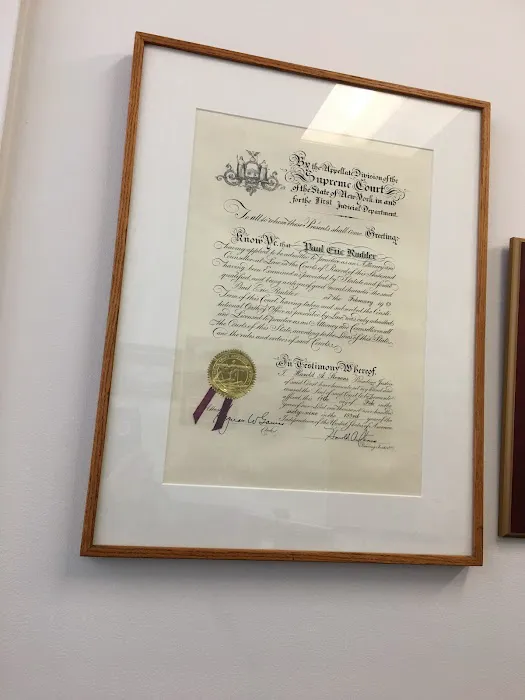 By the Appellate Division of the
Supreme Court
of the State of New York in and
for the First Judicial Department.
To all to whom these Presents shall come Greeting:
Know Ye, that Paul Eric Rudder
having applied to be admitted to practice as an Attorney and
Counsellor at Law in the Courts of Record of this State and
having been examined as provided by Statute and found
qualified and being a person of good moral character, the said
Paul Eric Rudder at the February 1969
Term of this Court, having taken and subscribed the Consti-
tutional Oath of Office as provided by Law, was duly admitted
and Licensed to practice as an Attorney and Counsellor in all
the Courts of this State, according to the Laws of this State
and the rules and orders of said Courts.
In Testimony Whereof,
I, Harold A. Stevens Presiding Justice
of said Court have hereunto set my hand and
caused the Seal of said Court to be hereunto
affixed, this day of Feb. in the
Year of our Lord one thousand nine hundred
sixty-nine in the year of the
Independence of the United States of America.
Clerk
Presiding Justice